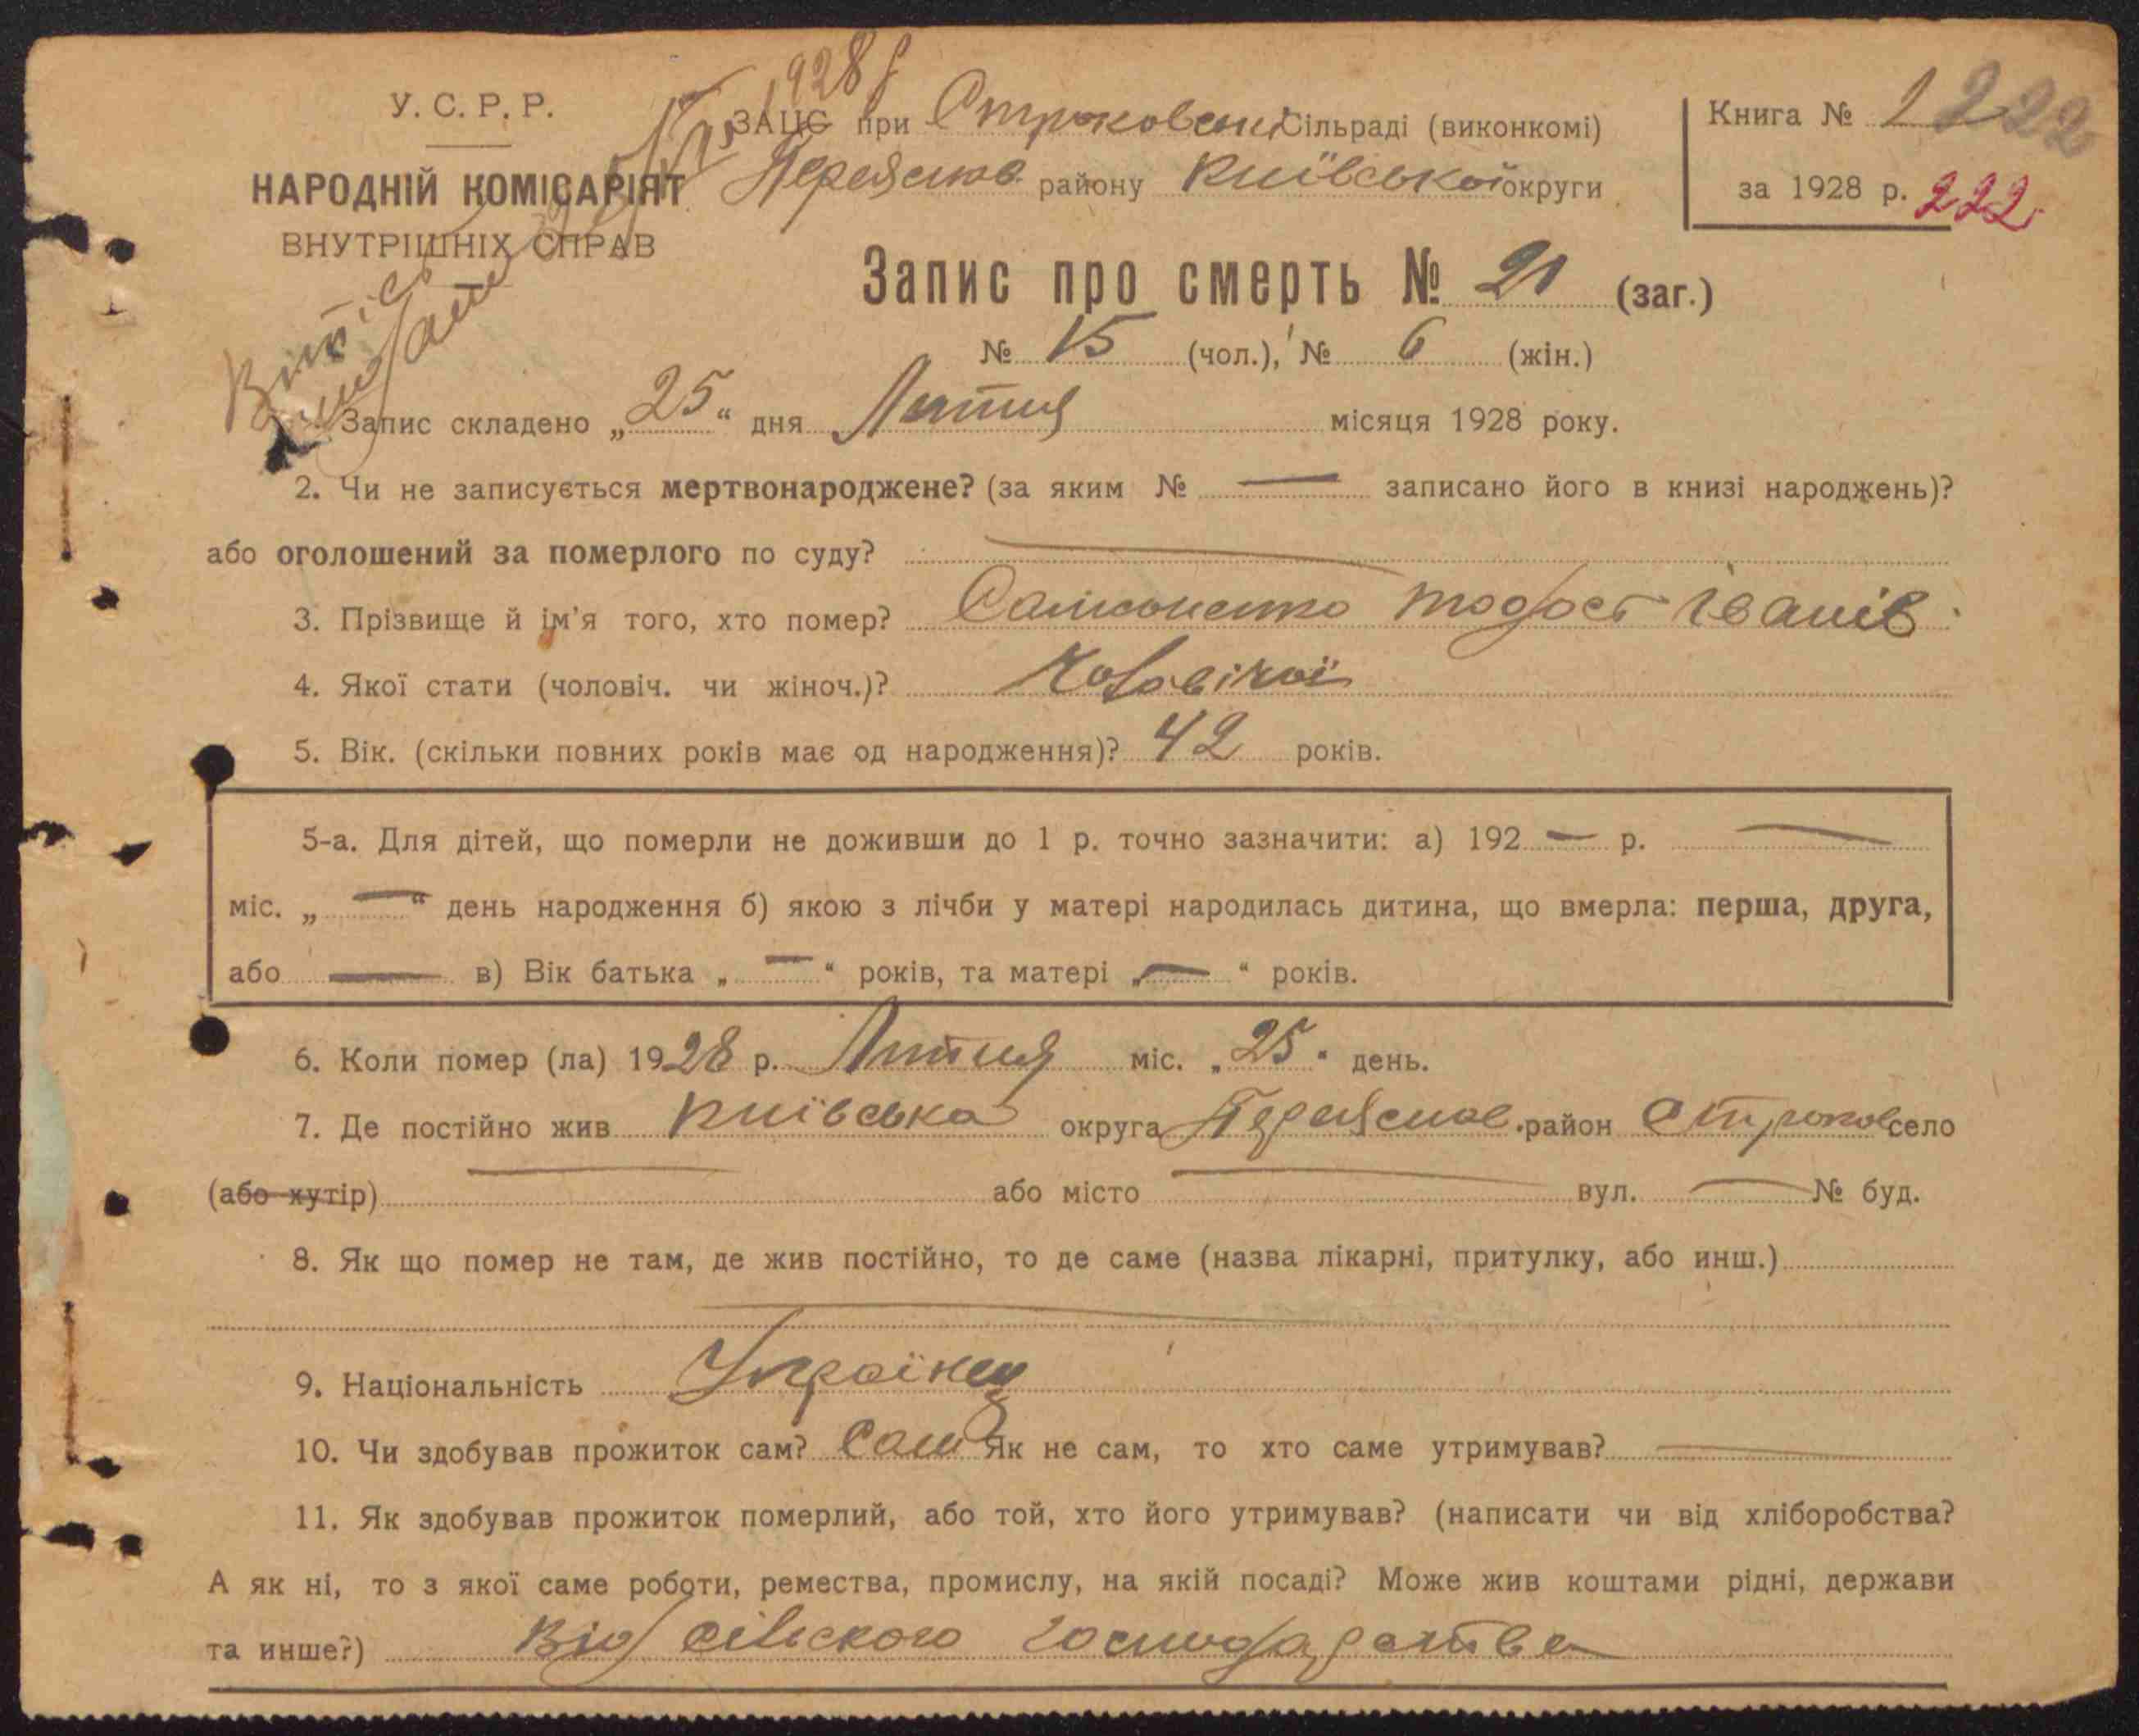 У. С. Р. Р.
НАРОДНІЙ КОМІСАРІЯТ
ВНУТРІШНІХ СПРАВ
1928 р
ЗАЦС при Строковські Сільраді (виконкомі)
Переяслов. району Київської округи
Книга № 1 222
за 1928 р. 222
Запис про смерть № 21 (заг.)
№ 15 (чол.), № 6 (жін.)
Запис складено „25“ дня Липня місяця 1928 року.
2. Чи не записується мертвонароджене? (за яким № — записано його в книзі народжень)?
або оголошений за померлого по суду? —
3. Прізвище й ім'я того, хто помер? Самсоненко Тодось Іванів
4. Якої стати (чоловіч. чи жіноч.)? Чоловічої
5. Вік. (скільки повних років має од народження)? 42 років.
5-а. Для дітей, що померли не доживши до 1 р. точно зазначити: а) 192 — р. —
міс. „ — “ день народження б) якою з лічби у матері народилась дитина, що вмерла: перша, друга,
або — в) Вік батька „ — “ років, та матері „ — “ років.
6. Коли помер (ла) 1928 р. Липня міс. „25“ день.
7. Де постійно жив Київська округа Переяслов. район Строков село
(або хутір) — або місто — вул. — № буд.
8. Як що помер не там, де жив постійно, то де саме (назва лікарні, притулку, або инш.)
—
9. Національність Українец
10. Чи здобував прожиток сам? Сам Як не сам, то хто саме утримував? —
11. Як здобував прожиток померлий, або той, хто його утримував? (написати чи від хліборобства?
А як ні, то з якої саме роботи, ремества, промислу, на якій посаді? Може жив коштами рідні, держави
та инше?) Від сільского господарства